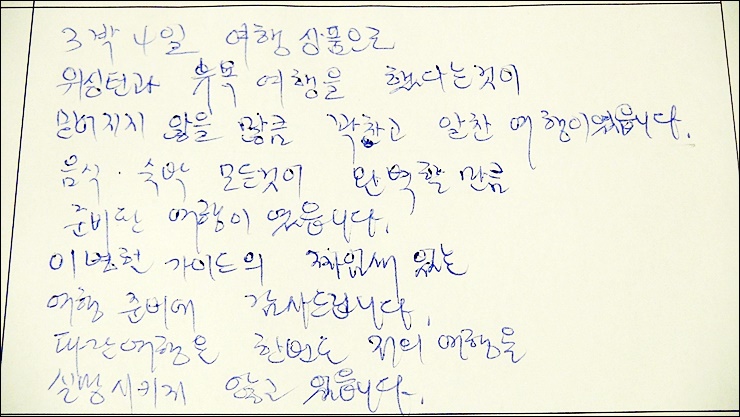 3박 4일 여행 상품으로
워싱턴과 뉴욕 여행을 했다는것이
믿어지지 않을 많큼 꽉찬고 알찬 여행이였읍니다.
음식·숙박 모든것이 완벽할 만큼
준비된 여행이 였읍니다.
이병헌 가이드의 짜임새 있는
여행 준비에 감사드립니다.
태관여행은 한번도 저의 여행을
실망시키지 않고 있읍니다.